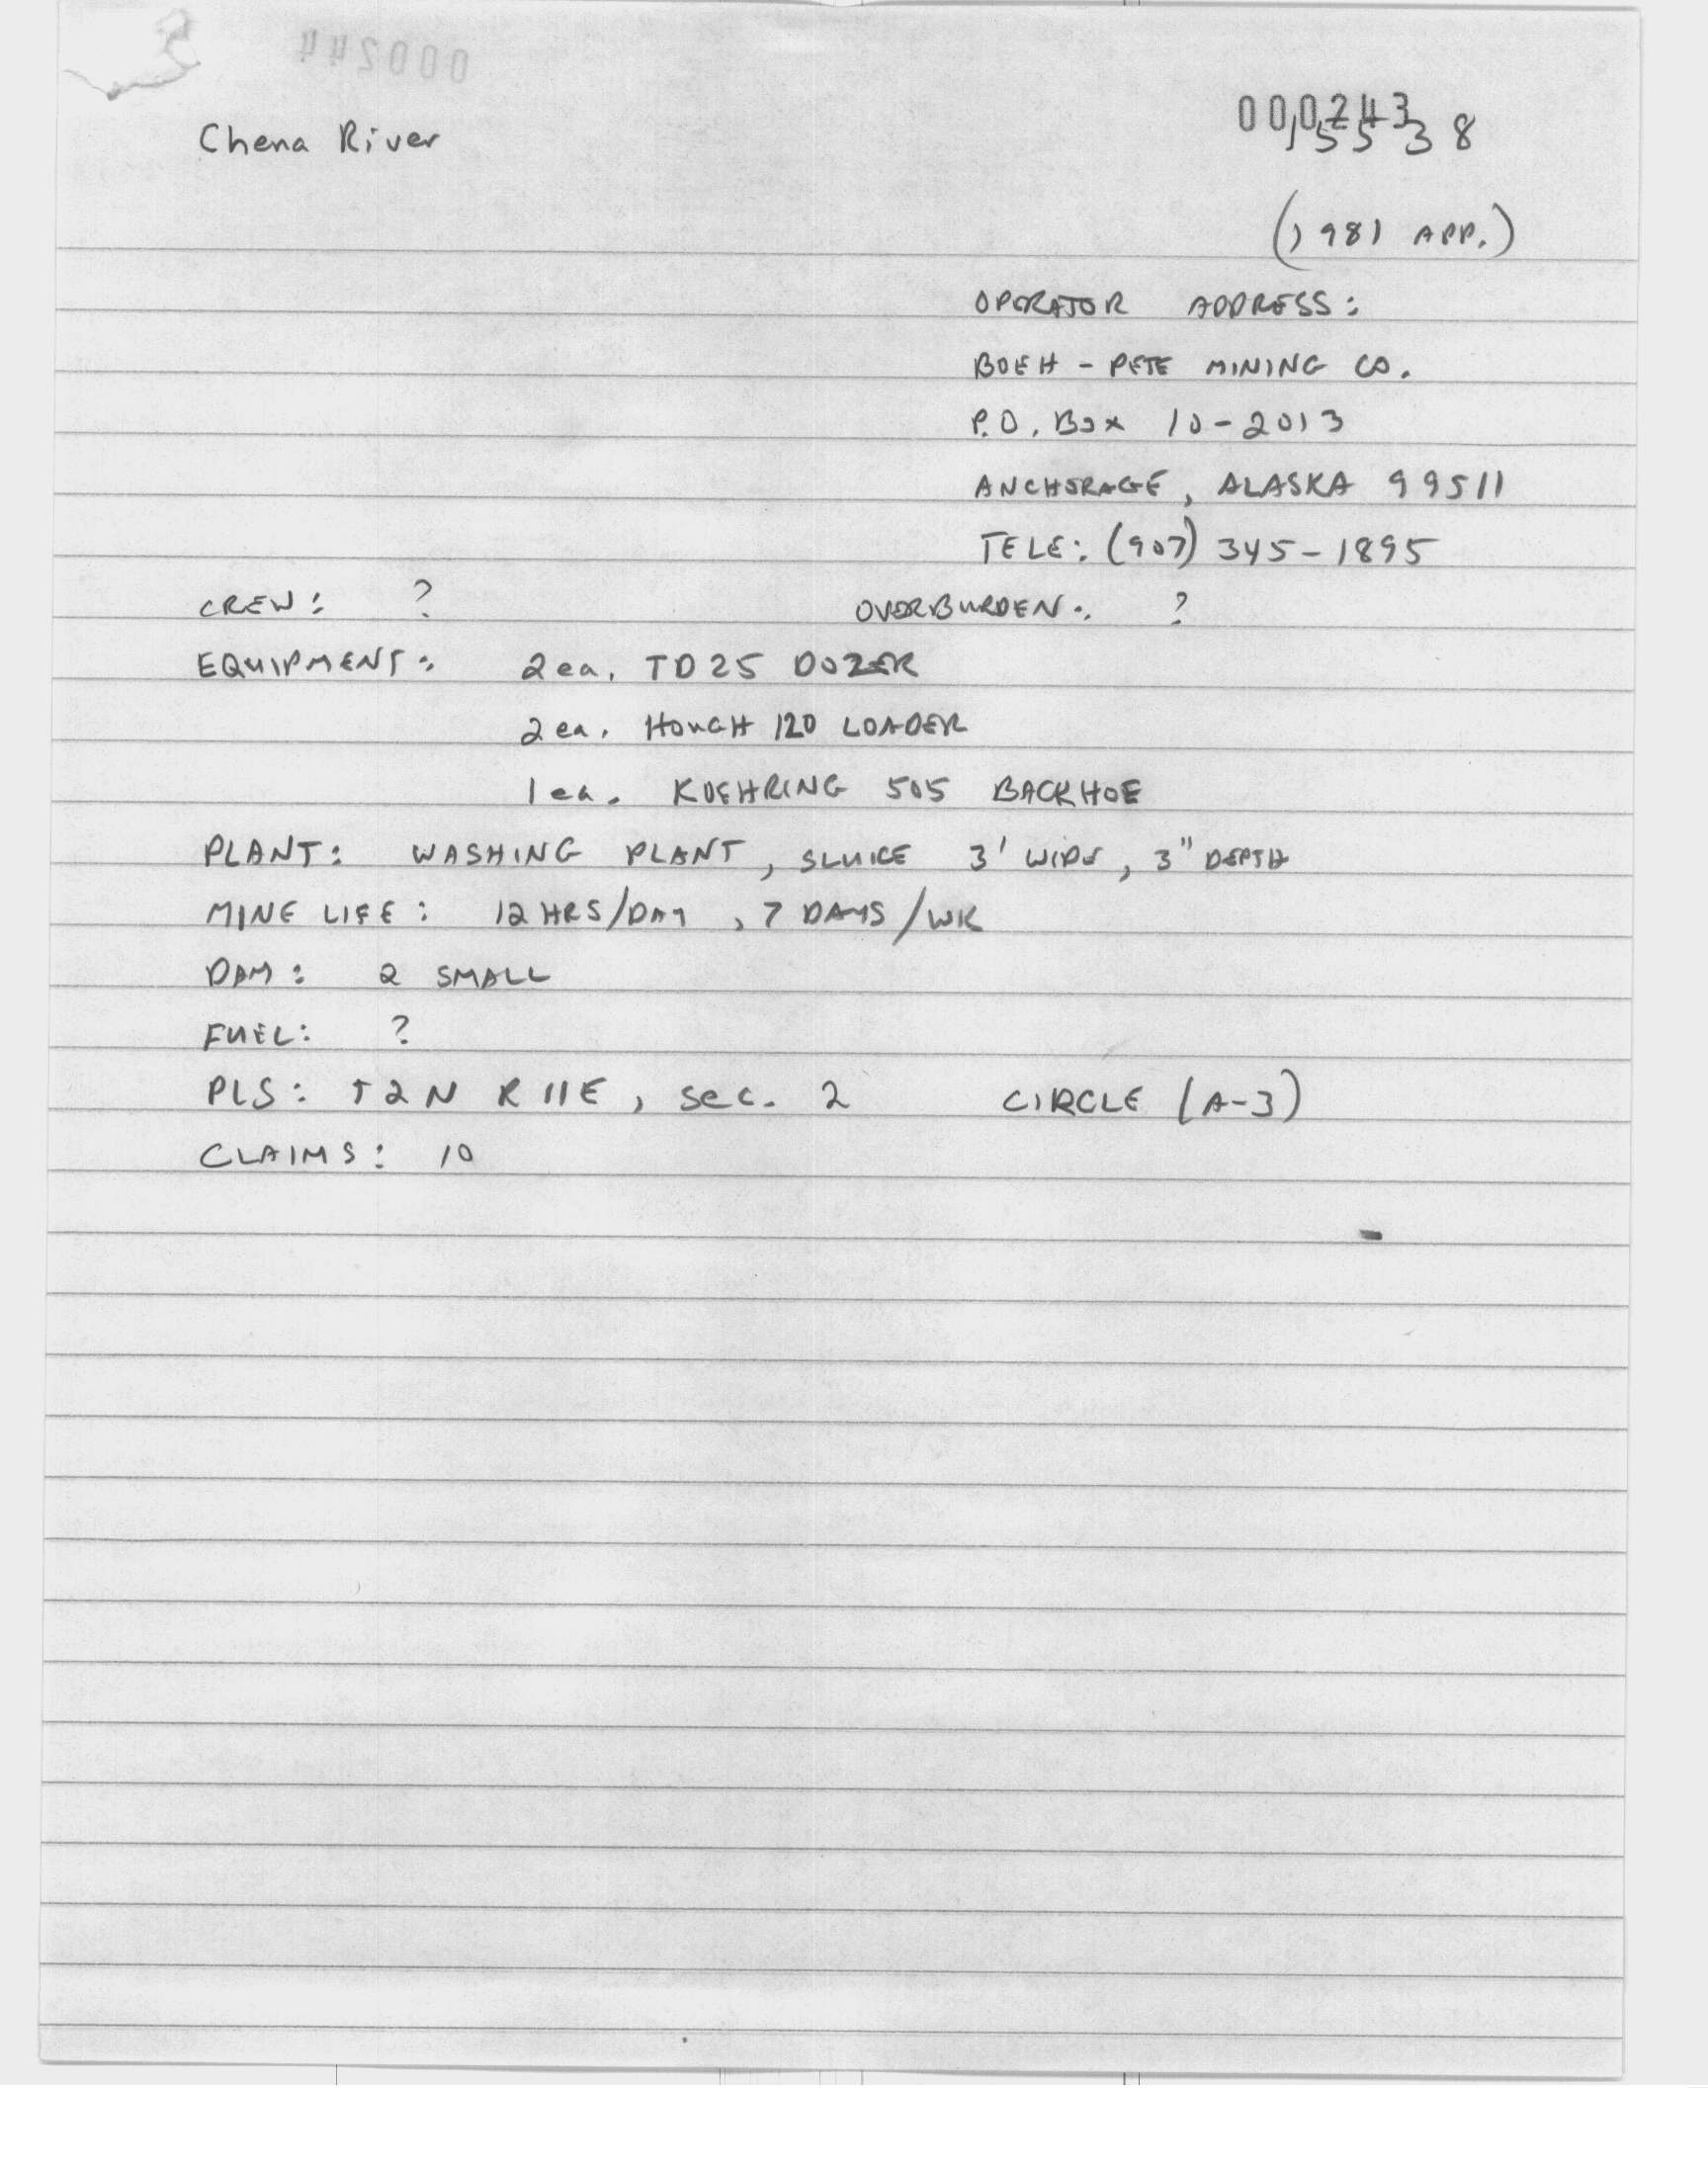 000244
Chena River
000243
155338
(1981 APP.)
OPERATOR ADDRESS:
BOEH - PETE MINING CO.
P.O. Box 10-2013
ANCHORAGE, ALASKA 99511
TELE: (907) 345-1895
CREW: ? OVERBURDEN: ?
EQUIPMENT: 2 ea. TD25 DOZER
2 ea. HOUGH 120 LOADER
1 ea. KOEHRING 505 BACKHOE
PLANT: WASHING PLANT, SLUICE 3' WIDE, 3" DEPTH
MINE LIFE: 12 HRS/DAY, 7 DAYS/WK
DAM: 2 SMALL
FUEL: ?
PLS: T2N R11E, sec. 2 CIRCLE (A-3)
CLAIMS: 10